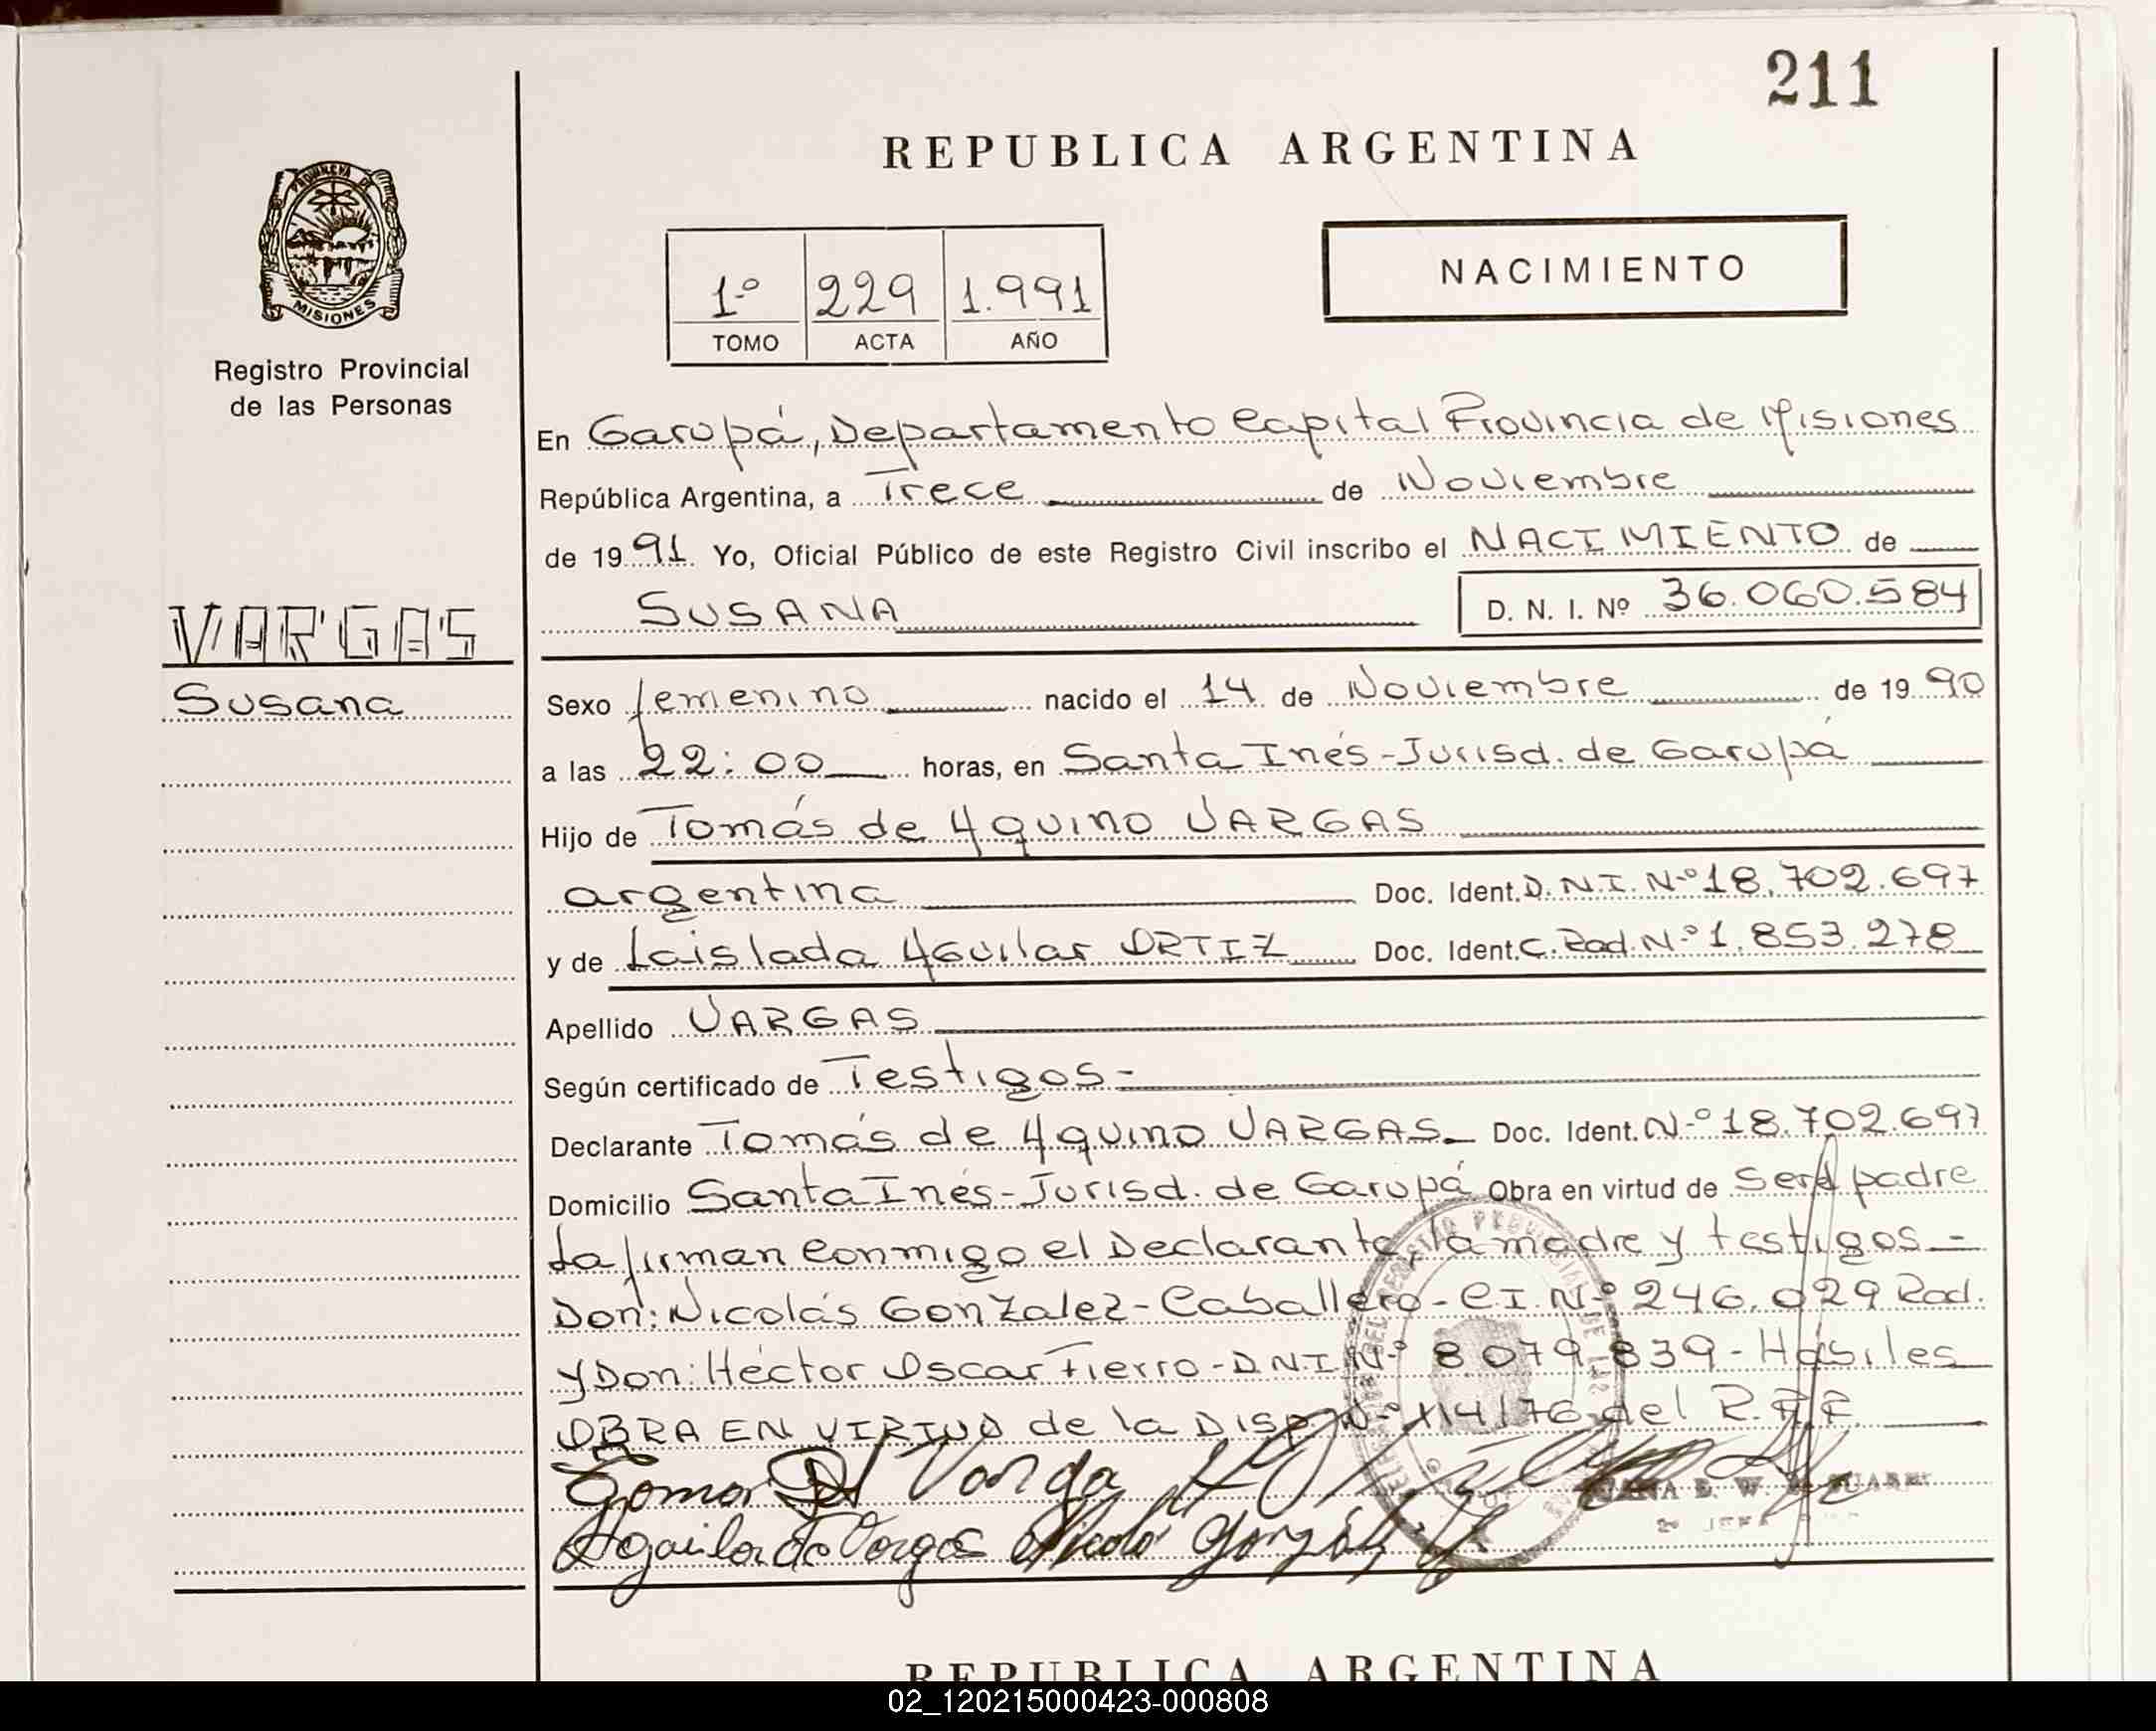 211
REPUBLICA ARGENTINA
PROVINCIA DE
MISIONES
Registro Provincial
de las Personas
1º 229 1.991
TOMO ACTA AÑO
NACIMIENTO
En Garupá, Departamento Capital Provincia de Misiones
República Argentina, a Trece de Noviembre
de 1991 Yo, Oficial Público de este Registro Civil inscribo el NACIMIENTO de
SUSANA D. N. I. Nº 36.060.584
VARGAS
Susana
Sexo femenino nacido el 14 de Noviembre de 1990
a las 22:00 horas, en Santa Inés-Jurisd. de Garupá
Hijo de Tomás de Aquino VARGAS
argentina Doc. Ident. D.N.I. Nº 18.702.697
y de Laislada Aguilar ORTIZ Doc. Ident. C. Rad. Nº 1.853.278
Apellido VARGAS
Según certificado de Testigos-
Declarante Tomás de Aquino VARGAS Doc. Ident. Nº 18.702.697
Domicilio Santa Inés-Jurisd. de Garupá Obra en virtud de ser padre
La firman conmigo el Declarante, la madre y testigos-
Don: Nicolás Gonzalez-Caballero-C.I. Nº 246.029 Rad.
y Don: Héctor Oscar Fierro-D.N.I. Nº 8079.839-Hábiles
OBRA EN VIRTUD de la Disp. Nº 114/76 del R.P.P.
Vargas
Aguilar de Vargas Nicolas González
REPUBLICA ARGENTINA
02_120215000423-000808